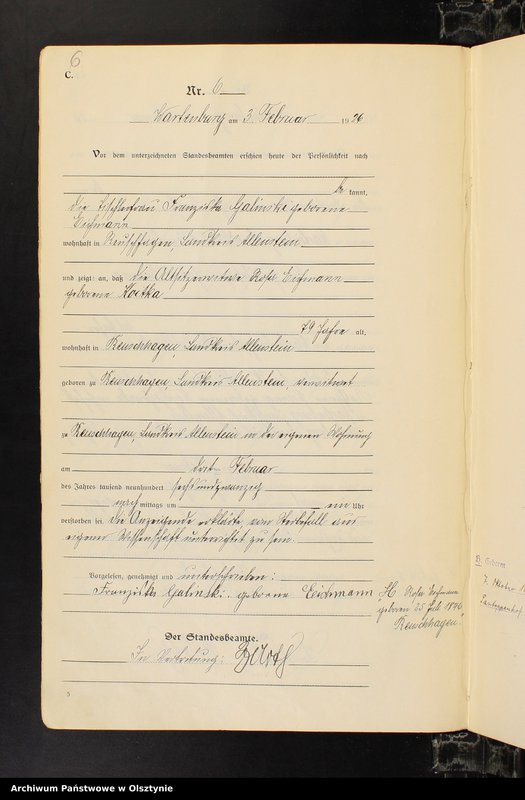 6
C.
Nr. 6
Wartenburg am 3. Februar 1926
Vor dem unterzeichneten Standesbeamten erschien heute der Persönlichkeit nach
be kannt,
die Tischlerfrau Franziska Galinski geborene
Eichmann
wohnhaft in Reuschhagen, Landkreis Allenstein
und zeigte an, daß die Altsitzerwitwe Rosa Eichmann
geborene
79 Jahre alt,
wohnhaft in Reuschhagen, Landkreis Allenstein
geboren zu Reuschhagen, Landkreis Allenstein, verwitwet
zu Reuschhagen, Landkreis Allenstein in der eigenen Wohnung
am Februar
des Jahres tausend neunhundert sechsundzwanzig
nach mittags um ein Uhr
verstorben sei. Die Anzeigende erklärte, vom Sterbefall aus
eigener Wissenschaft unterrichtet zu sein.
Vorgelesen, genehmigt und unterschrieben:
Franziska Galinski geborene Eichmann
Rosa Eichmann
geboren 25 Juli 1846
Reuschhagen.
Der Standesbeamte.
In Vertretung:
5
7. Oktober
Archiwum Państwowe w Olsztynie